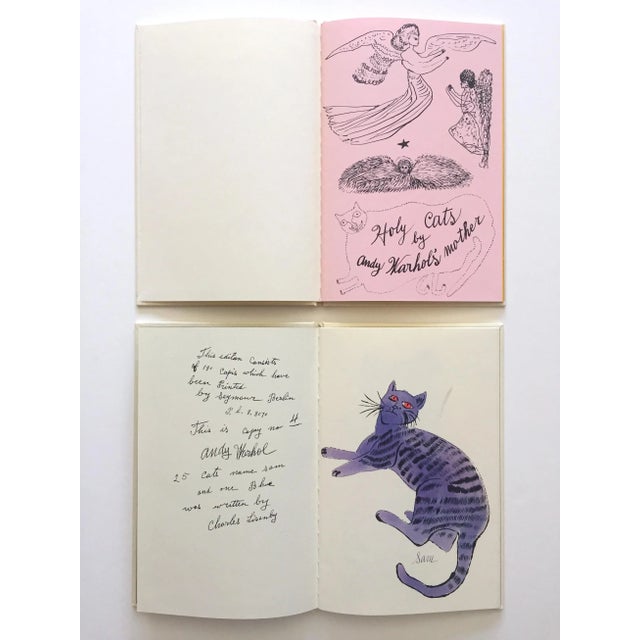 Holy Cats
by
Andy Warhol's mother
This edition consists
of 190 copis which have
been Printed
by Seymour Berlin
This is copy no 4
Andy Warhol
25 cats name sam
and one Blue
was written by
Charles Lisanby
Sam